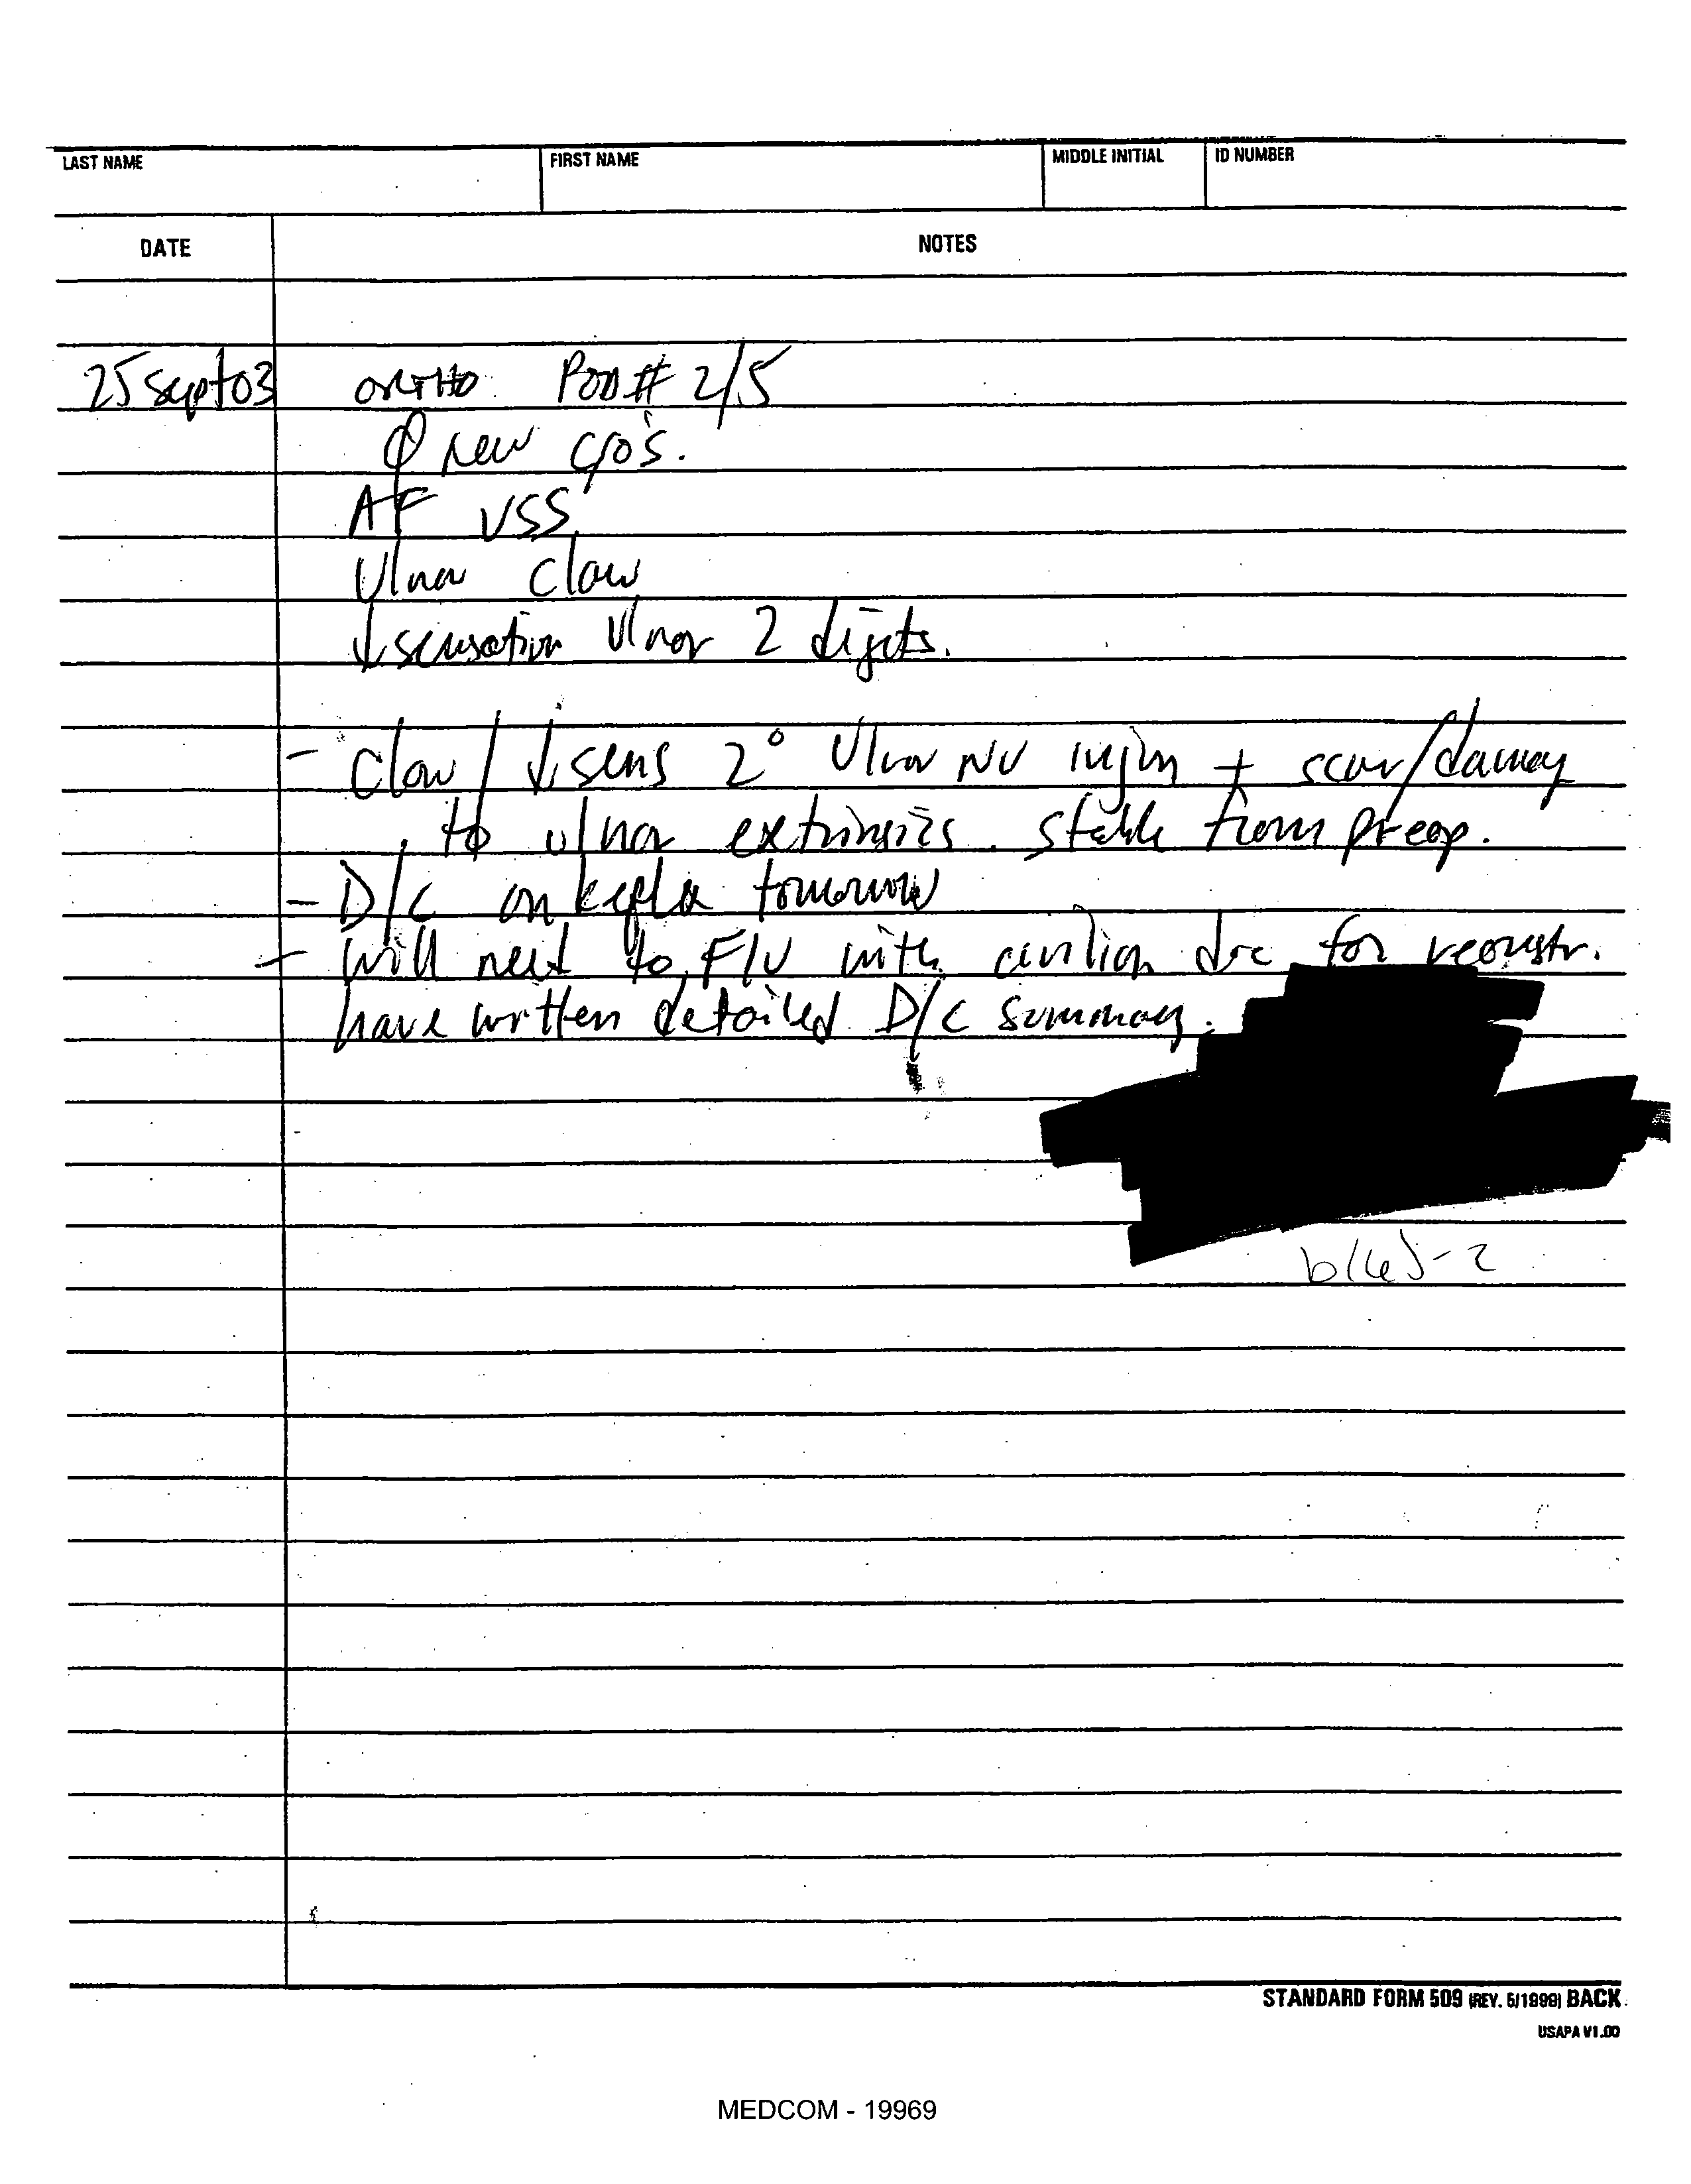 LAST NAME FIRST NAME MIDDLE INITIAL ID NUMBER
DATE NOTES
25 Sept 03 ORTHO POD# 2/5
Ø new c/o's.
AF VSS
Ulnar Claw
↓ sensation Ulnar 2 digits.
- Claw / ↓ sens 2° Ulnar NV injury + scar/damage
to ulnar extrinsics. Stable from preop.
- D/C on keflex tomorrow
- Will need to F/U with civilian doc for reconstr.
have written detailed D/C summary.
b(6)-2
STANDARD FORM 509 (REV. 5/1999) BACK
USAPA V1.00
MEDCOM - 19969